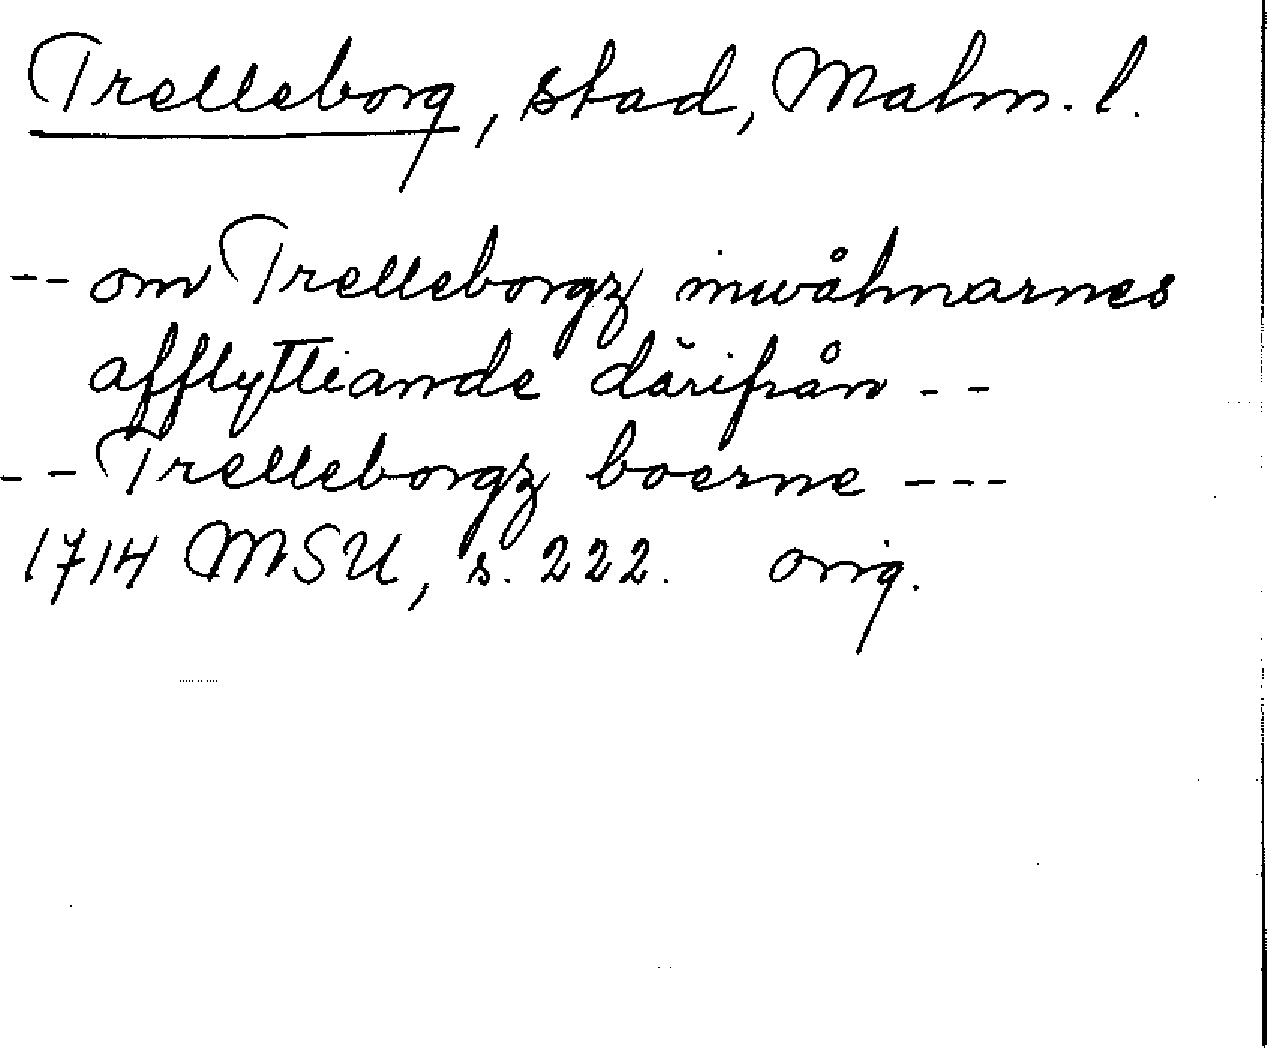 Trelleborg, stad, Malm. l.
-- om Trelleborgz inwåhnarnes
afflyttiande därifrån --
-- Trelleborgz boerne ---
1714 MSU, s. 222. orig.